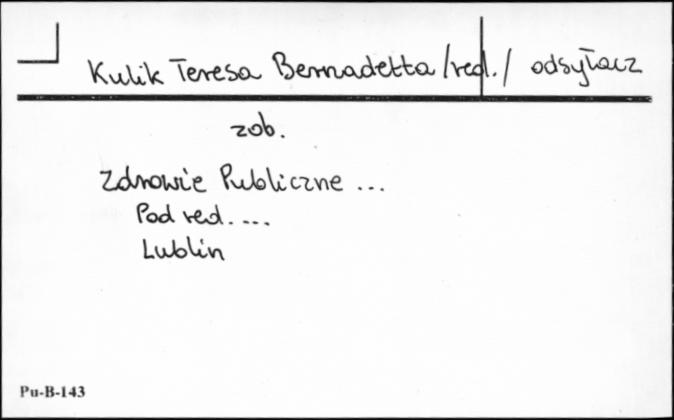 Kulik Teresa Bernadetta /red./ odsyłacz
zob.
Zdrowie Publiczne ...
Pod red. ....
Lublin
Pu-B-143